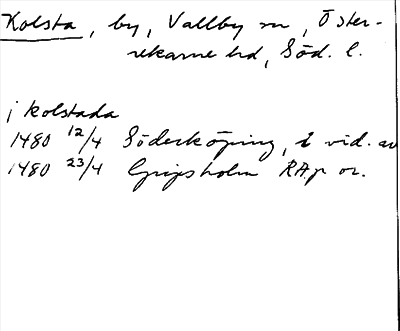 Kolsta, by, Vallby sn, Öster-
rekarne hd, Söd. l.
j kolstada
1480 12/4 Söderköping, i vid. av
1480 23/4 Gripsholm RAp or.